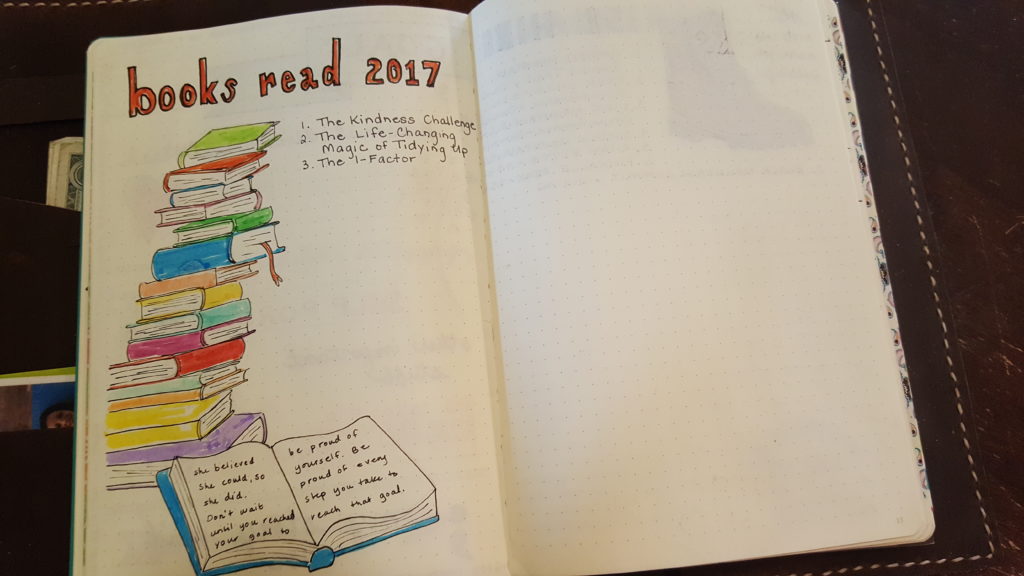 books read 2017
1. The Kindness Challenge
2. The Life-Changing
Magic of Tidying Up
3. The I-Factor
she believed
she could, so
she did.
Don't wait
until you reached
your goal to
be proud of
yourself. Be
proud of every
step you take to
reach that goal.